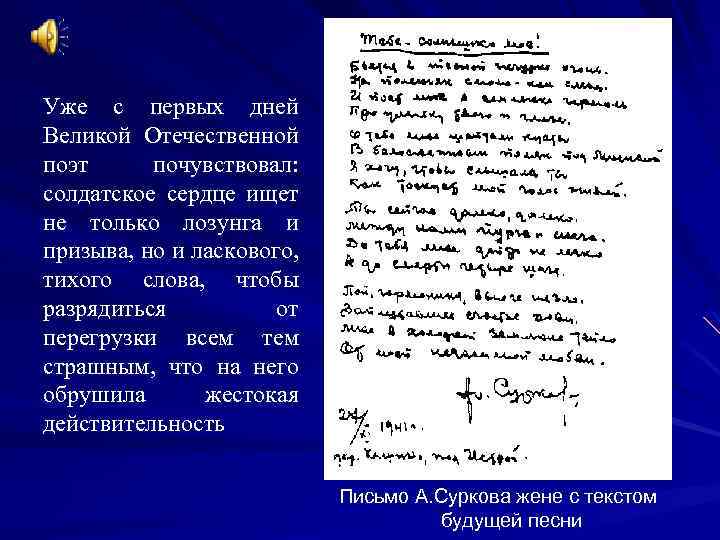 Уже с первых дней
Великой Отечественной
поэт почувствовал:
солдатское сердце ищет
не только лозунга и
призыва, но и ласкового,
тихого слова, чтобы
разрядиться от
перегрузки всем тем
страшным, что на него
обрушила жестокая
действительность
Тебе - солнышко моё!
Бьется в тесной печурке огонь.
На поленьях смола - как слеза.
И поет мне в землянке гармонь
Про улыбку твою и глаза.
О тебе мне шептали кусты
В белоснежных полях под Москвой
Я хочу, чтобы слышала ты
Как тоскует мой голос живой.
Ты сейчас далеко, далеко
между нами снега и снега.
До тебя мне дойти не легко
А до смерти четыре шага.
Пой, гармоника, вьюге назло.
Заплутавшее счастье зови.
Мне в холодной землянке тепло
От моей негасимой любви.
А. Сурков
1941 г.
дер. Кашино, под Истрой.
Письмо А.Суркова жене с текстом
будущей песни